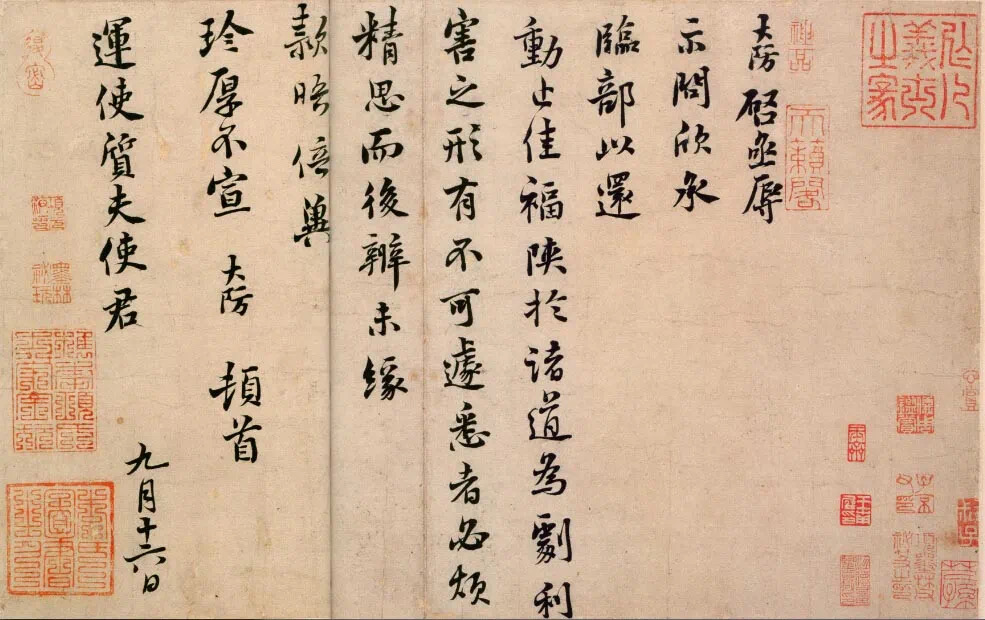 神品
天籟閣
大防啓亟辱
示問欣承
臨部以還
動止佳福陝於諸道為劇利
害之形有不可遽悉者必煩
精思而後辦未緣
款晤倍冀
珍厚不宣 大防 頓首
運使質夫使君
九月十六日